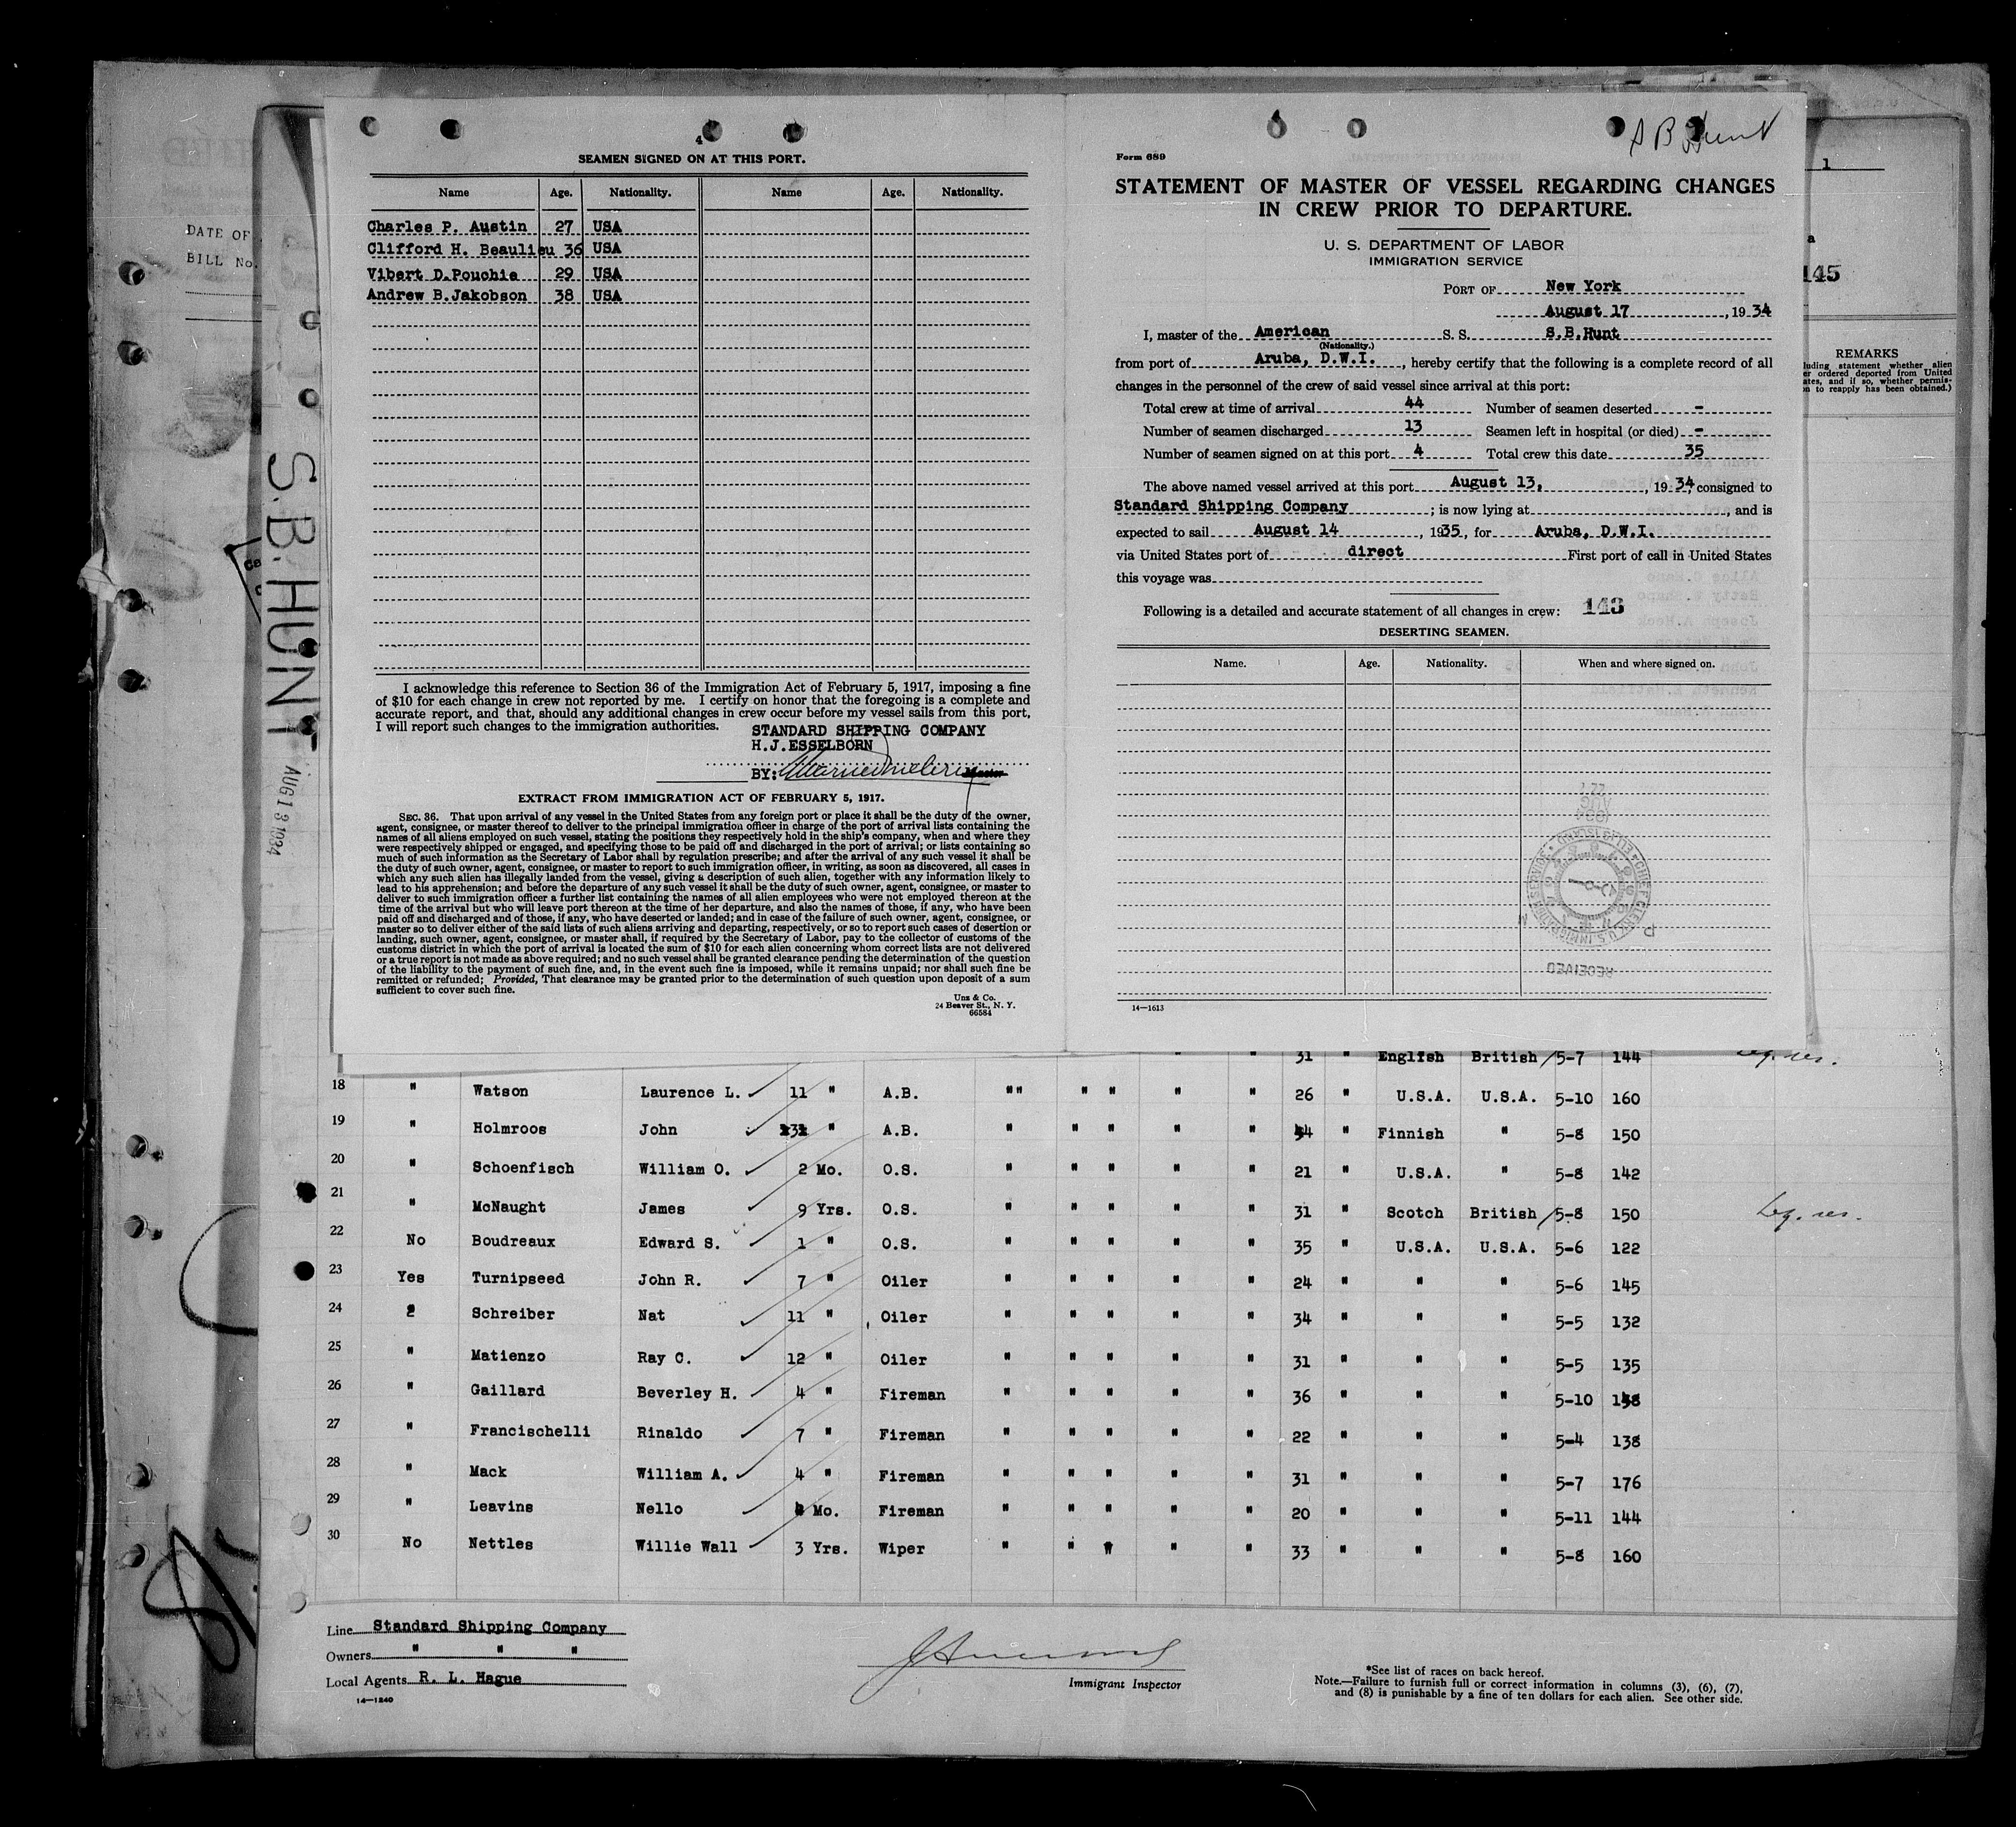 4
SEAMEN SIGNED ON AT THIS PORT.
Name Age. Nationality. Name Age. Nationality.
Charles P. Austin 27 USA
Clifford H. Beaulieu 36 USA
Vibert D.Pouchie 29 USA
Andrew B.Jakobson 38 USA
I acknowledge this reference to Section 36 of the Immigration Act of February 5, 1917, imposing a fine
of $10 for each change in crew not reported by me. I certify on honor that the foregoing is a complete and
accurate report, and that, should any additional changes in crew occur before my vessel sails from this port,
I will report such changes to the immigration authorities.
STANDARD SHIPPING COMPANY
H.J.ESSELBORN
BY: Master
EXTRACT FROM IMMIGRATION ACT OF FEBRUARY 5, 1917.
SEC. 36. That upon arrival of any vessel in the United States from any foreign port or place it shall be the duty of the owner,
agent, consignee, or master thereof to deliver to the principal immigration officer in charge of the port of arrival lists containing the
names of all aliens employed on such vessel, stating the positions they respectively hold in the ship's company, when and where they
were respectively shipped or engaged, and specifying those to be paid off and discharged in the port of arrival; or lists containing so
much of such information as the Secretary of Labor shall by regulation prescribe; and after the arrival of any such vessel it shall be
the duty of such owner, agent, consignee, or master to report to such immigration officer, in writing, as soon as discovered, all cases in
which any such alien has illegally landed from the vessel, giving a description of such alien, together with any information likely to
lead to his apprehension; and before the departure of any such vessel it shall be the duty of such owner, agent, consignee, or master to
deliver to such immigration officer a further list containing the names of all alien employees who were not employed thereon at the
time of the arrival but who will leave port thereon at the time of her departure, and also the names of those, if any, who have been
paid off and discharged and of those, if any, who have deserted or landed; and in case of the failure of such owner, agent, consignee, or
master so to deliver either of the said lists of such aliens arriving and departing, respectively, or so to report such cases of desertion or
landing, such owner, agent, consignee, or master shall, if required by the Secretary of Labor, pay to the collector of customs of the
customs district in which the port of arrival is located the sum of $10 for each alien concerning whom correct lists are not delivered
or a true report is not made as above required; and no such vessel shall be granted clearance pending the determination of the question
of the liability to the payment of such fine, and, in the event such fine is imposed, while it remains unpaid; nor shall such fine be
remitted or refunded; Provided, That clearance may be granted prior to the determination of such question upon deposit of a sum
sufficient to cover such fine.
Unz & Co.
24 Beaver St., N. Y.
66584
S B Hunt
Form 689
STATEMENT OF MASTER OF VESSEL REGARDING CHANGES
IN CREW PRIOR TO DEPARTURE.
U. S. DEPARTMENT OF LABOR
IMMIGRATION SERVICE
PORT OF New York
August 17, 1934
I, master of the American S. S. S.B.Hunt
(Nationality.)
from port of Aruba, D.W.I., hereby certify that the following is a complete record of all
changes in the personnel of the crew of said vessel since arrival at this port:
Total crew at time of arrival 44 Number of seamen deserted -
Number of seamen discharged 13 Seamen left in hospital (or died) -
Number of seamen signed on at this port 4 Total crew this date 35
The above named vessel arrived at this port August 13, , 1934, consigned to
Standard Shipping Company ; is now lying at , and is
expected to sail August 14, 1935, for Aruba, D.W.I.
via United States port of direct First port of call in United States
this voyage was
Following is a detailed and accurate statement of all changes in crew: 143
DESERTING SEAMEN.
Name. Age. Nationality. When and where signed on.
RECEIVED
14—1613
DATE OF
BILL No.
S. B. HUNT
AUG 13 1934
1
145
REMARKS
luding statement whether alien
er ordered deported from United
ates, and if so, whether permis-
n to reapply has been obtained.)
31 " English British 5-7 144
18 " Watson Laurence L. 11 " A.B. "" " " " " 26 " U.S.A. U.S.A. 5-10 160
19 " Holmroos John " A.B. " " " " " " Finnish " 5-8 150
20 " Schoenfisch William O. 2 Mo. O.S. " " " " " 21 " U.S.A. " 5-8 142
21 " McNaught James 9 Yrs. O.S. " " " " " 31 " Scotch British 5-8 150 Leg. res.
22 No Boudreaux Edward S. 1 " O.S. " " " " " 35 " U.S.A. U.S.A. 5-6 122
23 Yes Turnipseed John R. 7 " Oiler " " " " " 24 " " " 5-6 145
24 Schreiber Nat 11 " Oiler " " " " " 34 " " " 5-5 132
25 " Matienzo Ray C. 12 " Oiler " " " " " 31 " " " 5-5 135
26 " Gaillard Beverley H. 4 " Fireman " " " " " 36 " " " 5-10
27 " Francischelli Rinaldo 7 " Fireman " " " " " 22 " " " 5-4 138
28 " Mack William A. 4 " Fireman " " " " " 31 " " " 5-7 176
29 " Leavins Nello Mo. Fireman " " " " " 20 " " " 5-11 144
30 No Nettles Willie Wall 3 Yrs. Wiper " " " " " 33 " " " 5-8 160
Line Standard Shipping Company
Owners " " "
Local Agents R. L. Hague
14—1240
Immigrant Inspector
*See list of races on back hereof.
Note.—Failure to furnish full or correct information in columns (3), (6), (7),
and (8) is punishable by a fine of ten dollars for each alien. See other side.